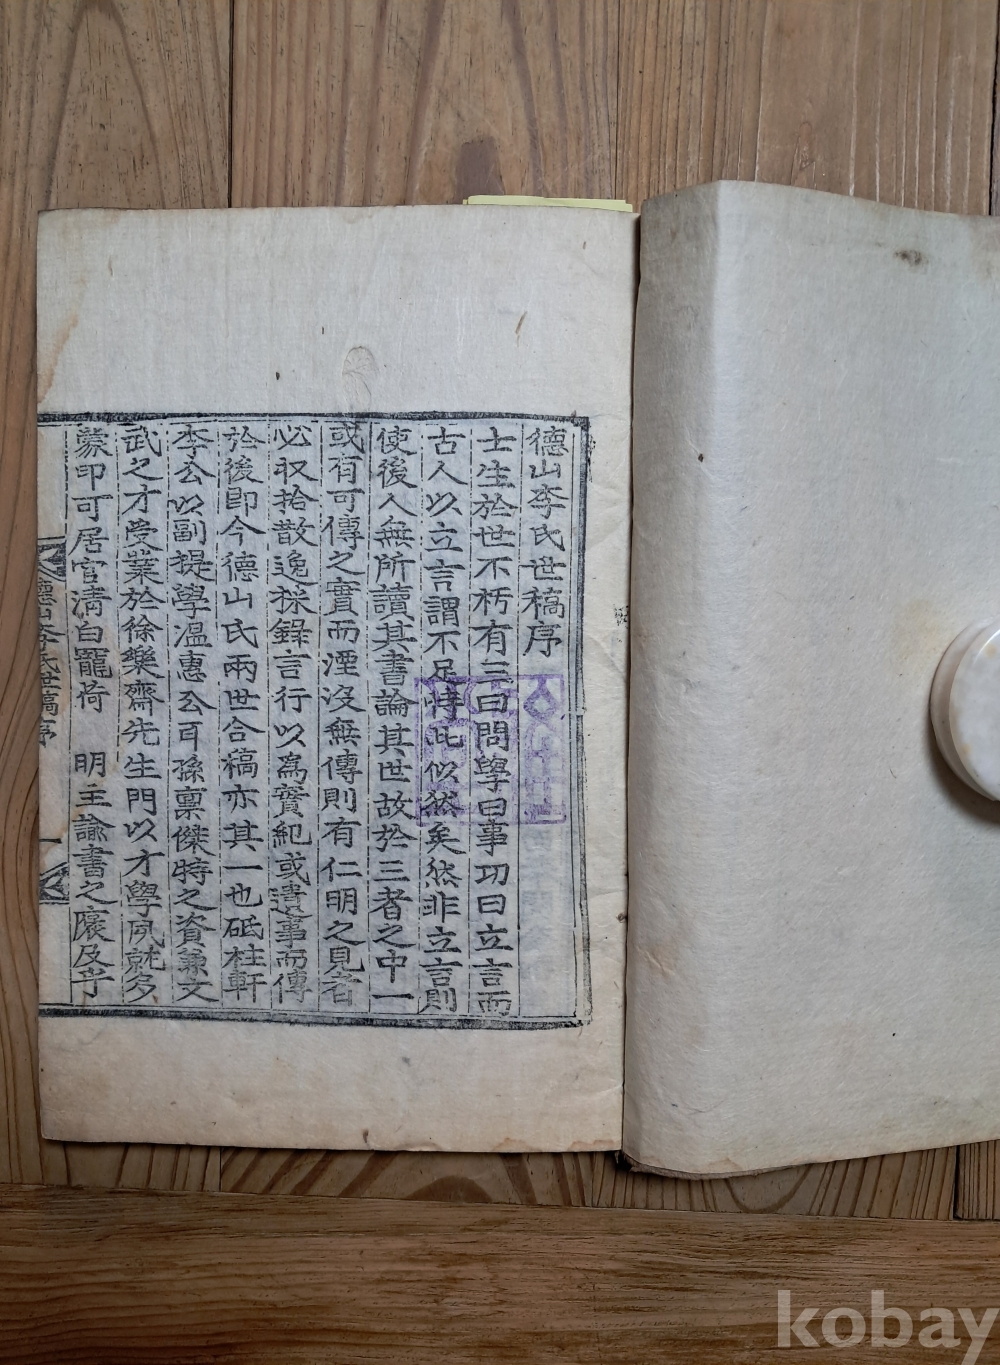 德山李氏世稿序
士生於世不朽有三曰問學曰事功曰立言而
古人以立言謂不足恃此似然矣然非立言則
使後人無所讀其書論其世故於三者之中一
或有可傳之實而湮沒無傳則有仁明之見者
必収拾散逸採錄言行以爲實紀或遺事而傳
於後卽今德山氏兩世合稿亦其一也砥柱軒
李公以副提學溫惠公耳孫禀傑特之資兼文
武之才受業於徐樂齋先生門以才學夙就多
蒙印可居官淸白寵荷 明主諭書之褒及乎
德山李氏世稿序 一
kobay